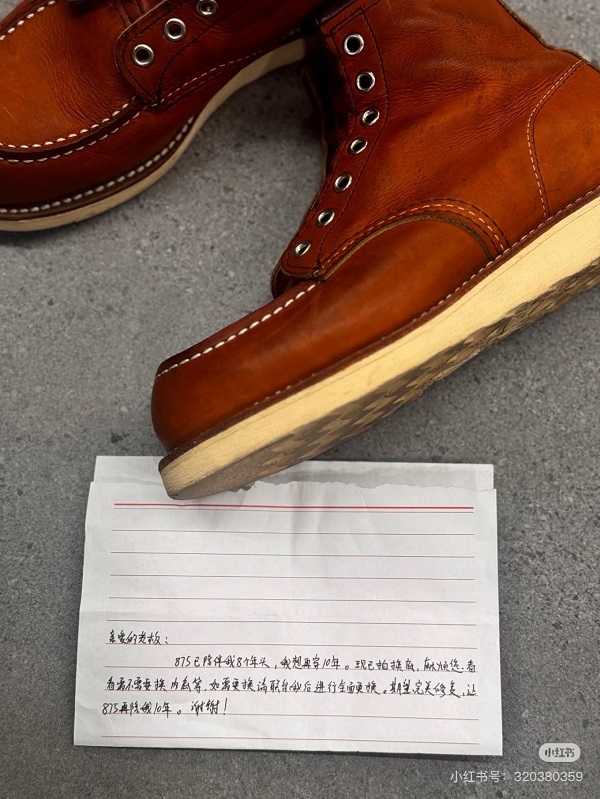 亲爱的老板：
875已陪伴我8个年头，我想再穿10年。现已拍换底，麻烦您看
看需不需要换内衬等，如需更换请联系我后进行全面更换。期望完美修复，让
875再陪我10年。谢谢！
小红书
小红书号：320380359